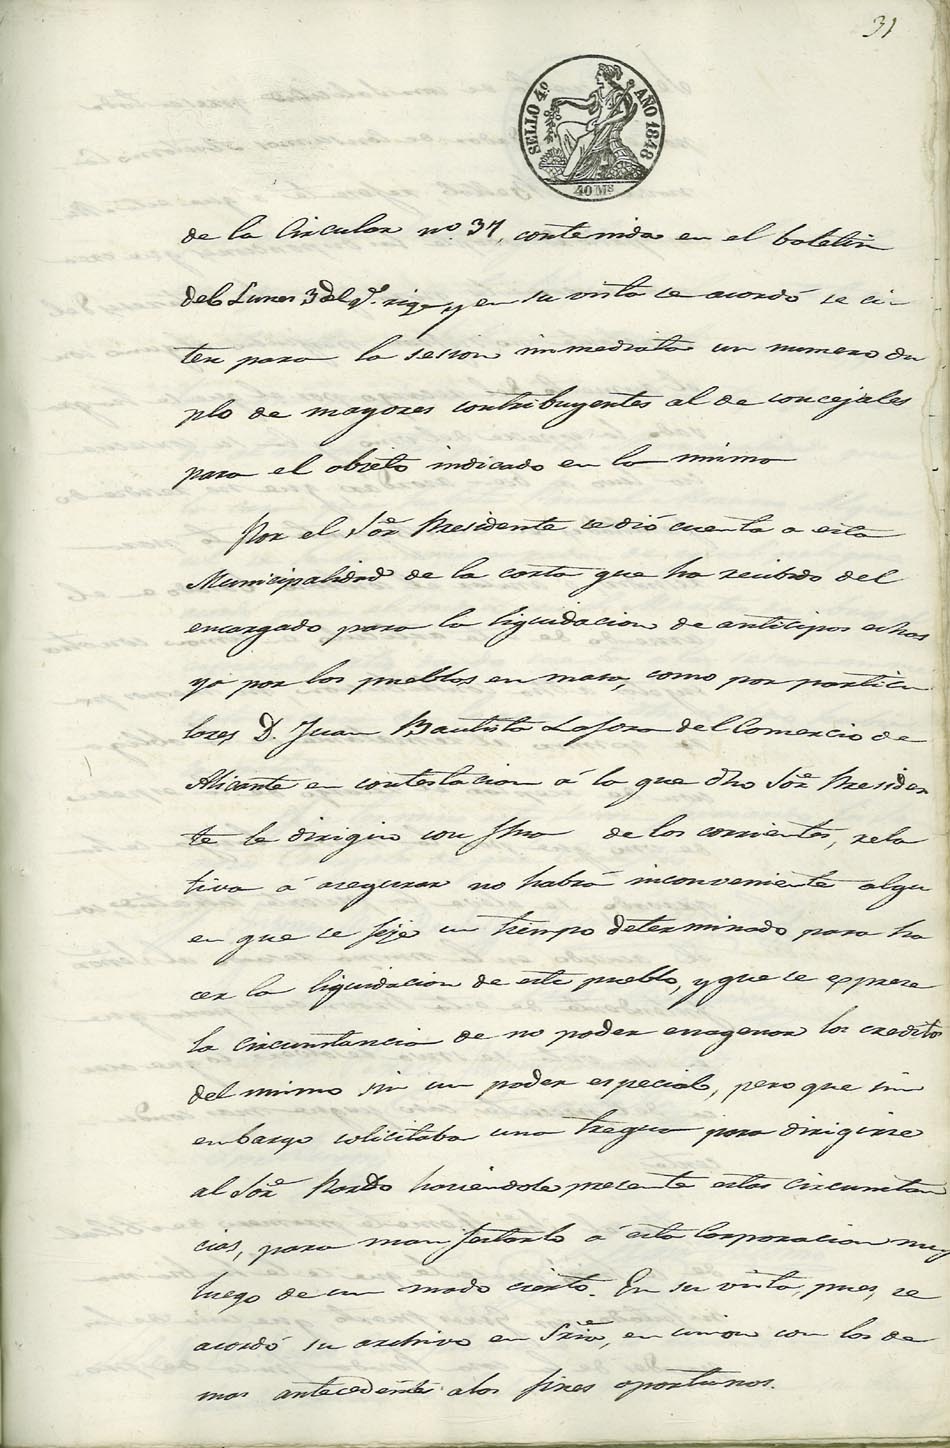 31
SELLO 4º AÑO 1848
40 Ms
de la Circular nº. 37, contenida en el boletin
del Lunes 3 del qe. rige y en su vista se acordó se ci-
ten para la sesion immediata un numero du
plo de mayores contribuyentes al de concejales
para el objeto indicado en la misma
Por el Sor. Presidente se dió cuenta a esta
Municipalidad de la carta que ha recibido del
encargado para la liquidacion de anticipos echos
ya por los pueblos en masa, como por particu
lares D. Juan Bautista Lafora del Comercio de
Alicante en contestacion á la que dho Sor. Presiden
te le dirigió con fha de los corrientes, rela
tiva á asegurar no habrá inconveniente algu
en que se feje un tiempo determinado para ha
cer la liquidacion de este pueblo, y que se exprese
la circunstancia de no poder enagenar los credito
del mismo sin un poder especial, pero que sin
embargo solicitaba una tregua para dirigirse
al Sor. Pardo haciendole presente estas circunstan
cias, para manifestarlo á esta Corporacion muy
luego de un modo cierto. En su vista, pues, se
acordó su archivo en Sria, en union con los de
mas antecedente a los fines oportunos.